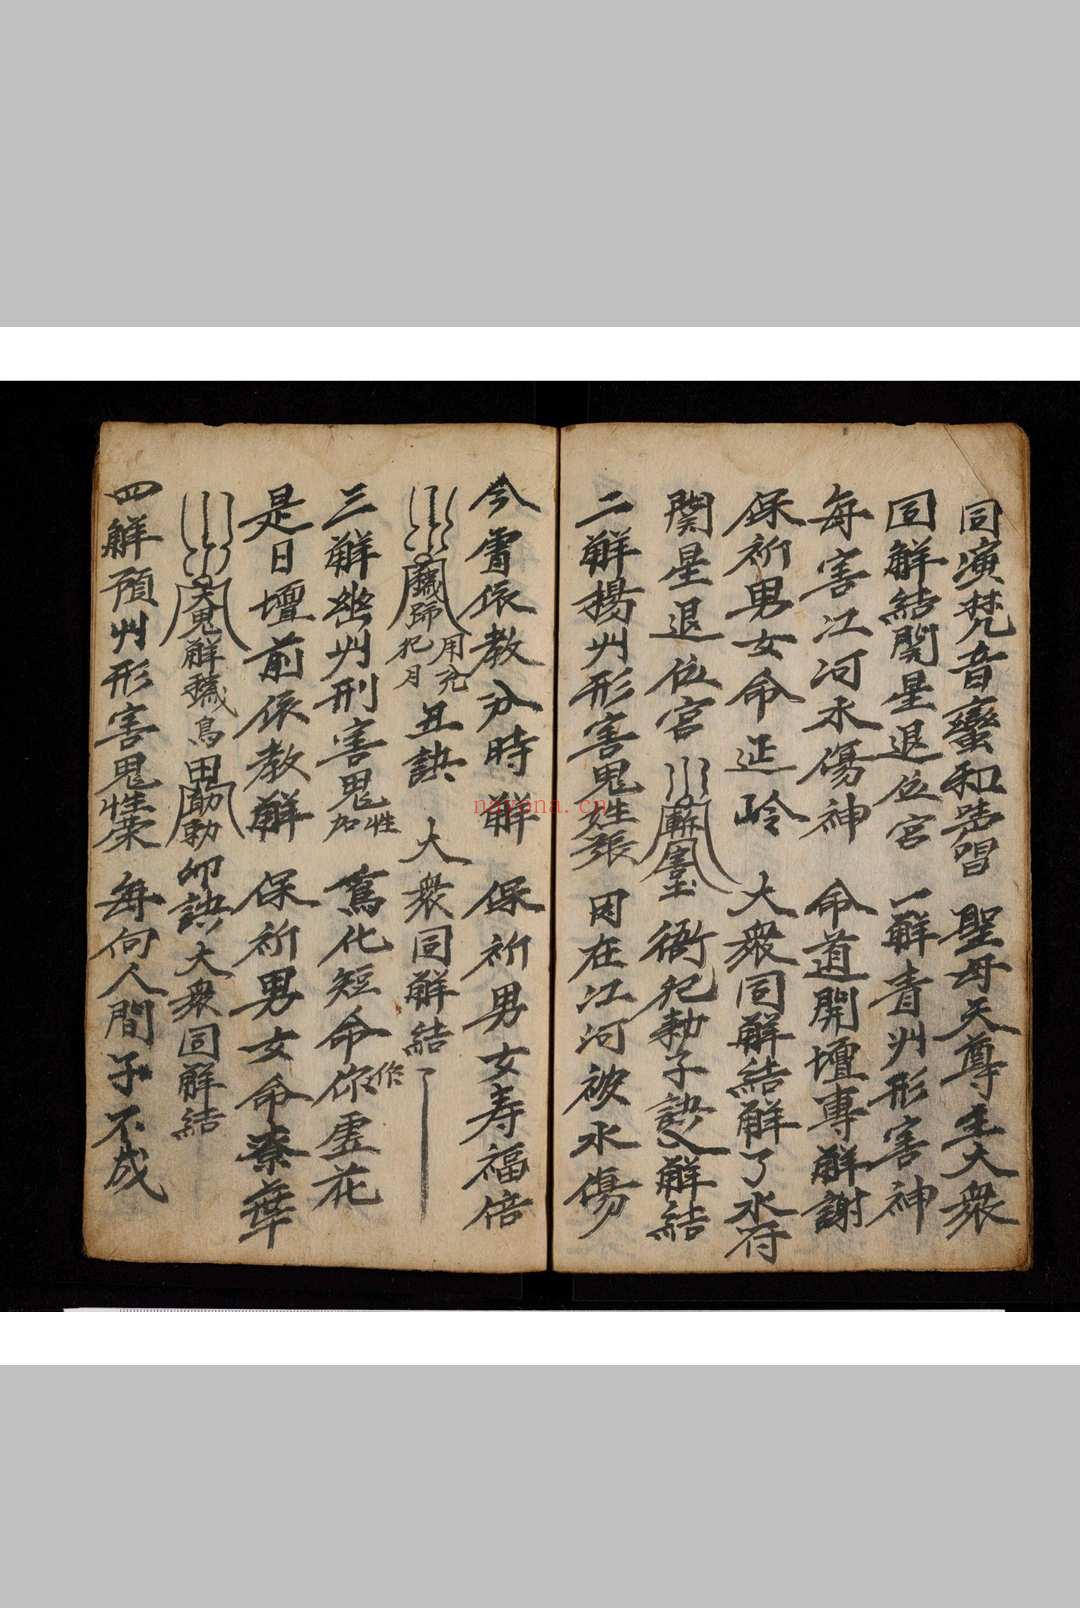 同演梵音齊和唱 聖母天尊至大衆
同解結関星退位宮 一解青州形害神
每害江河水傷神 命道開壇專解謝
保祈男女命延岭 大衆同解結解了水符
関星退位宮 衙犯勅子訣解結
二解揚州形害鬼姓張 因在江河被水傷
今宵依教分時解 保祈男女寿福倍
用充 犯月 丑訣 大衆同解結
三解幽州刑害鬼姓加 為化短命作你虛花
是日壇前依教解 保祈男女命寮華
鬼解 卯訣大衆同解結
四解預州形害鬼性柴 每向人間子不成
nayona.cn